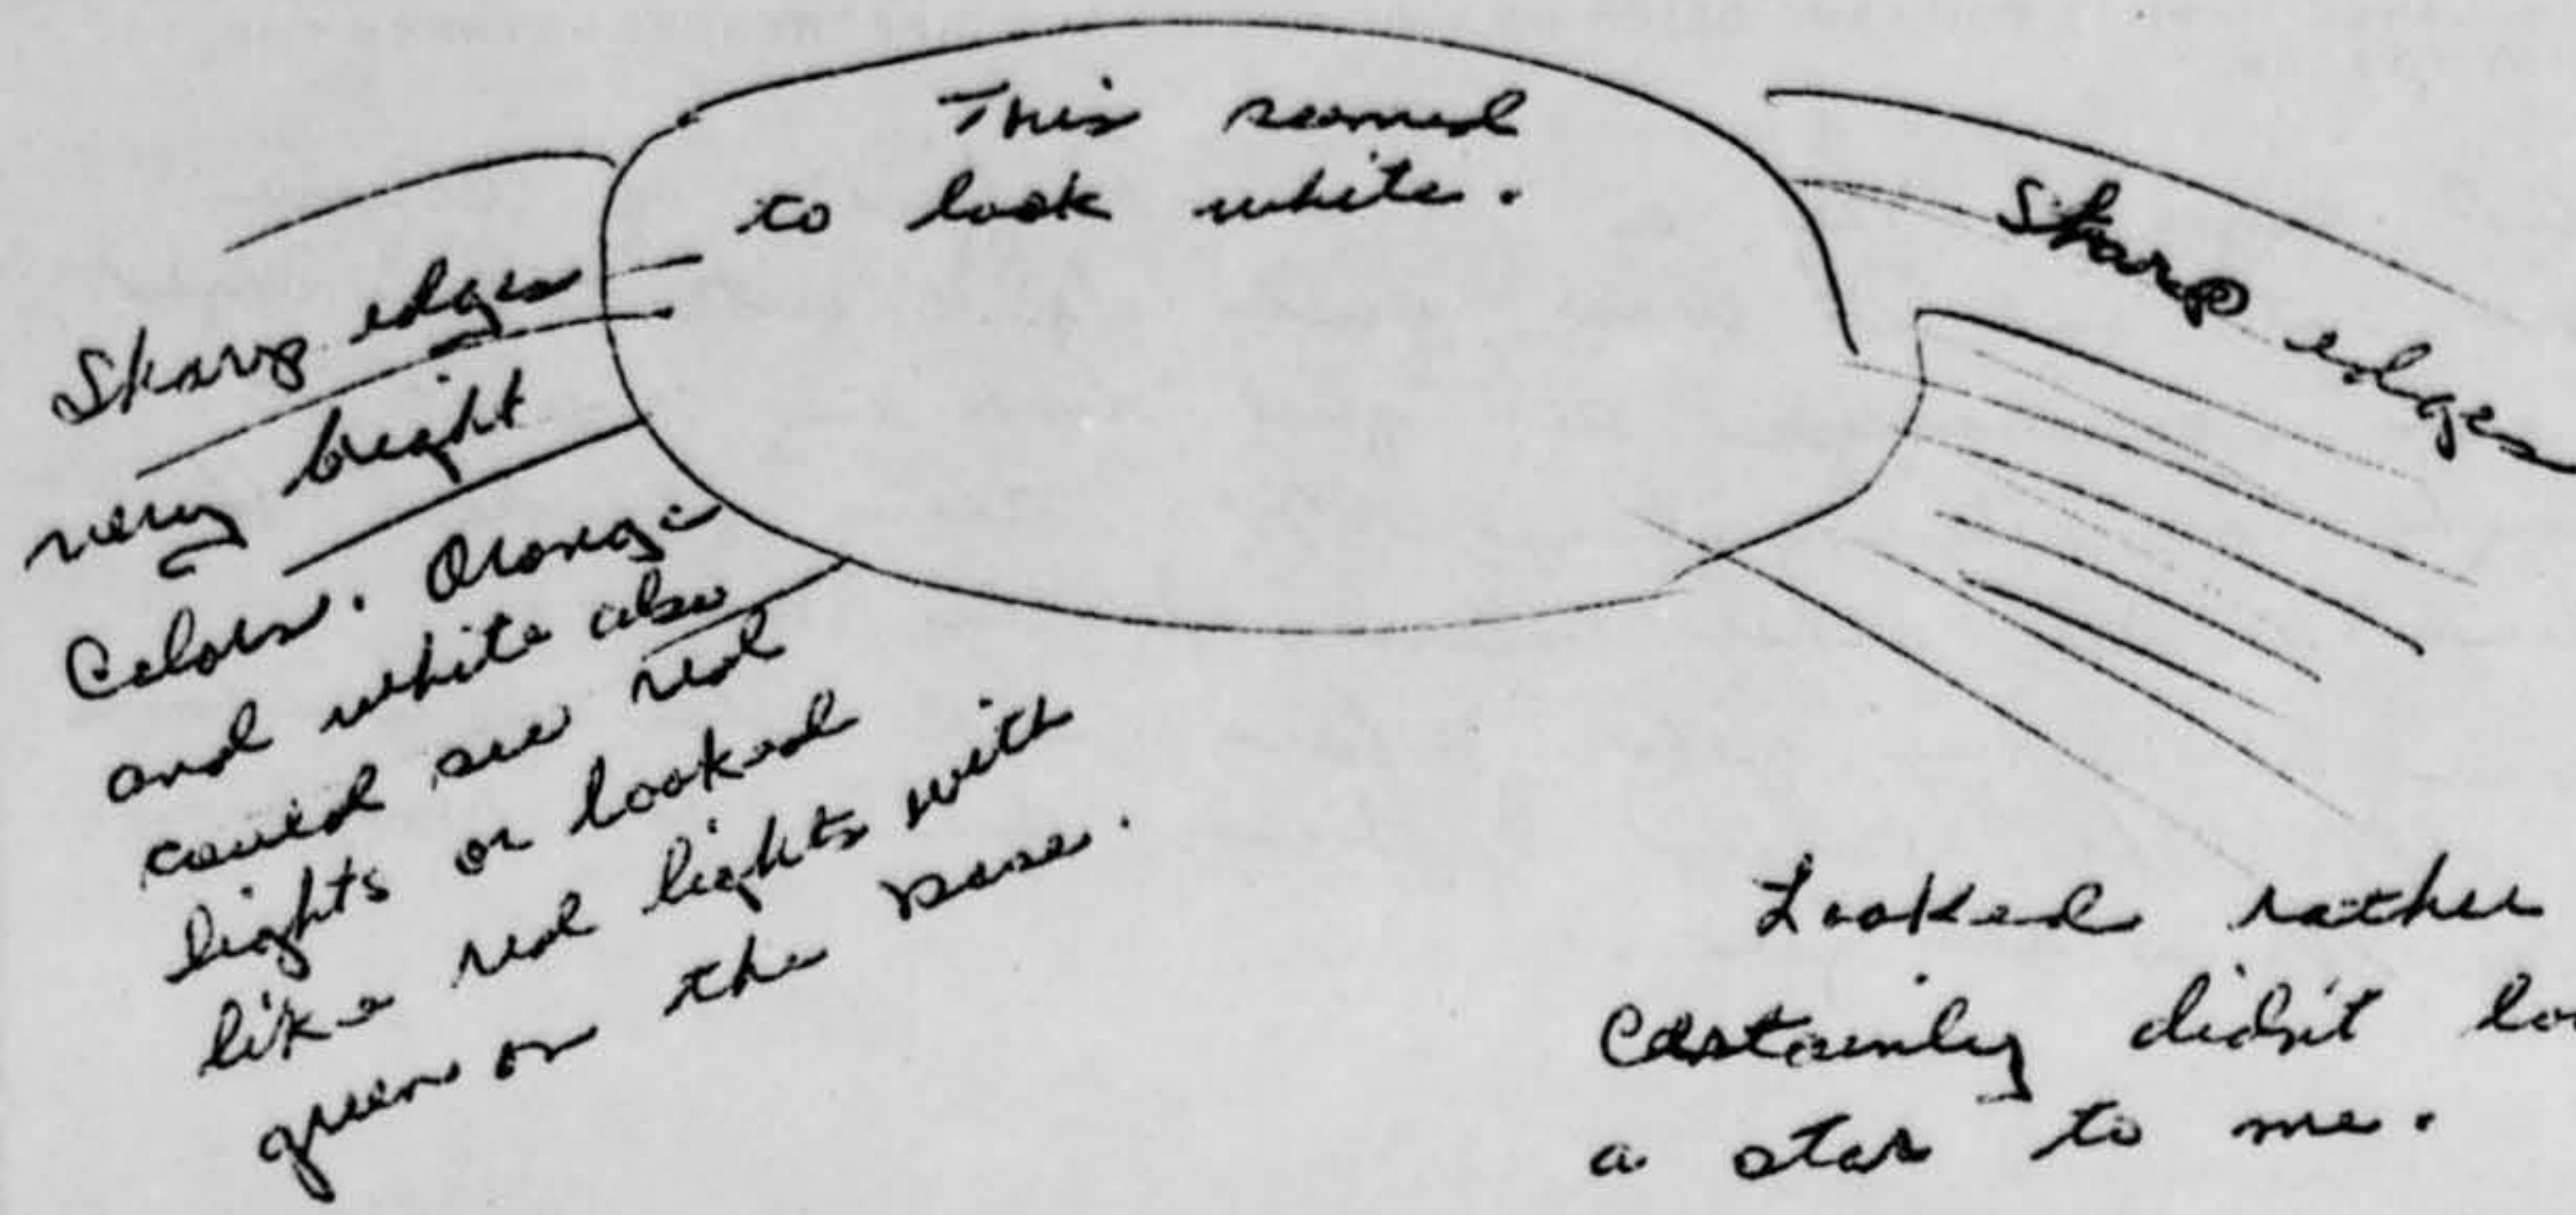 This seemed
to look white.
Sharp edges
Sharp edges
very bright
Colors. Orange
and white also
could see red
lights or looked
like red lights with
green on the base.
Looked rather
Certainly didn't lo
a star to me.